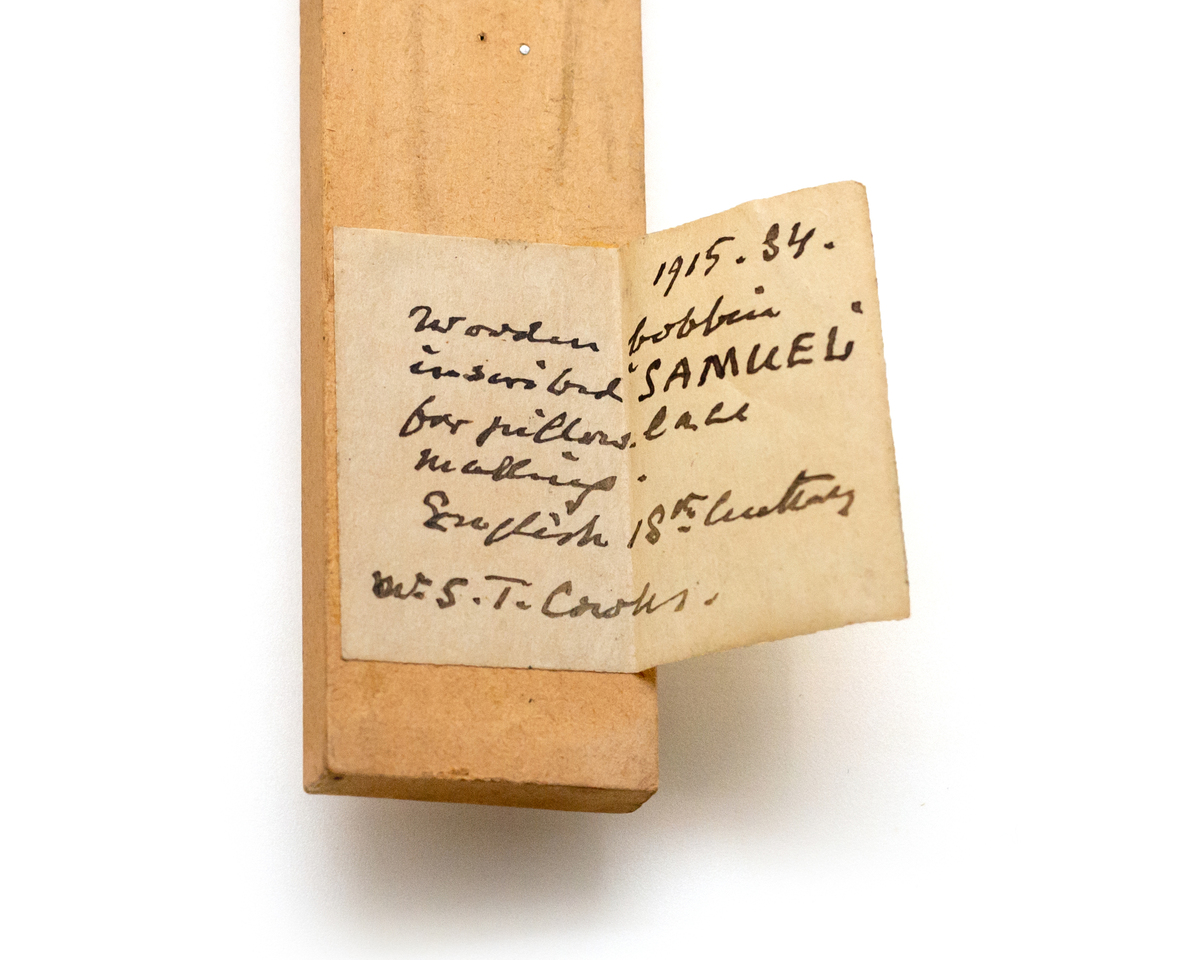 1915.34.
Wooden bobbin
inscribed "SAMUEL"
for pillow lace
making.
English 18th Century
S.T.